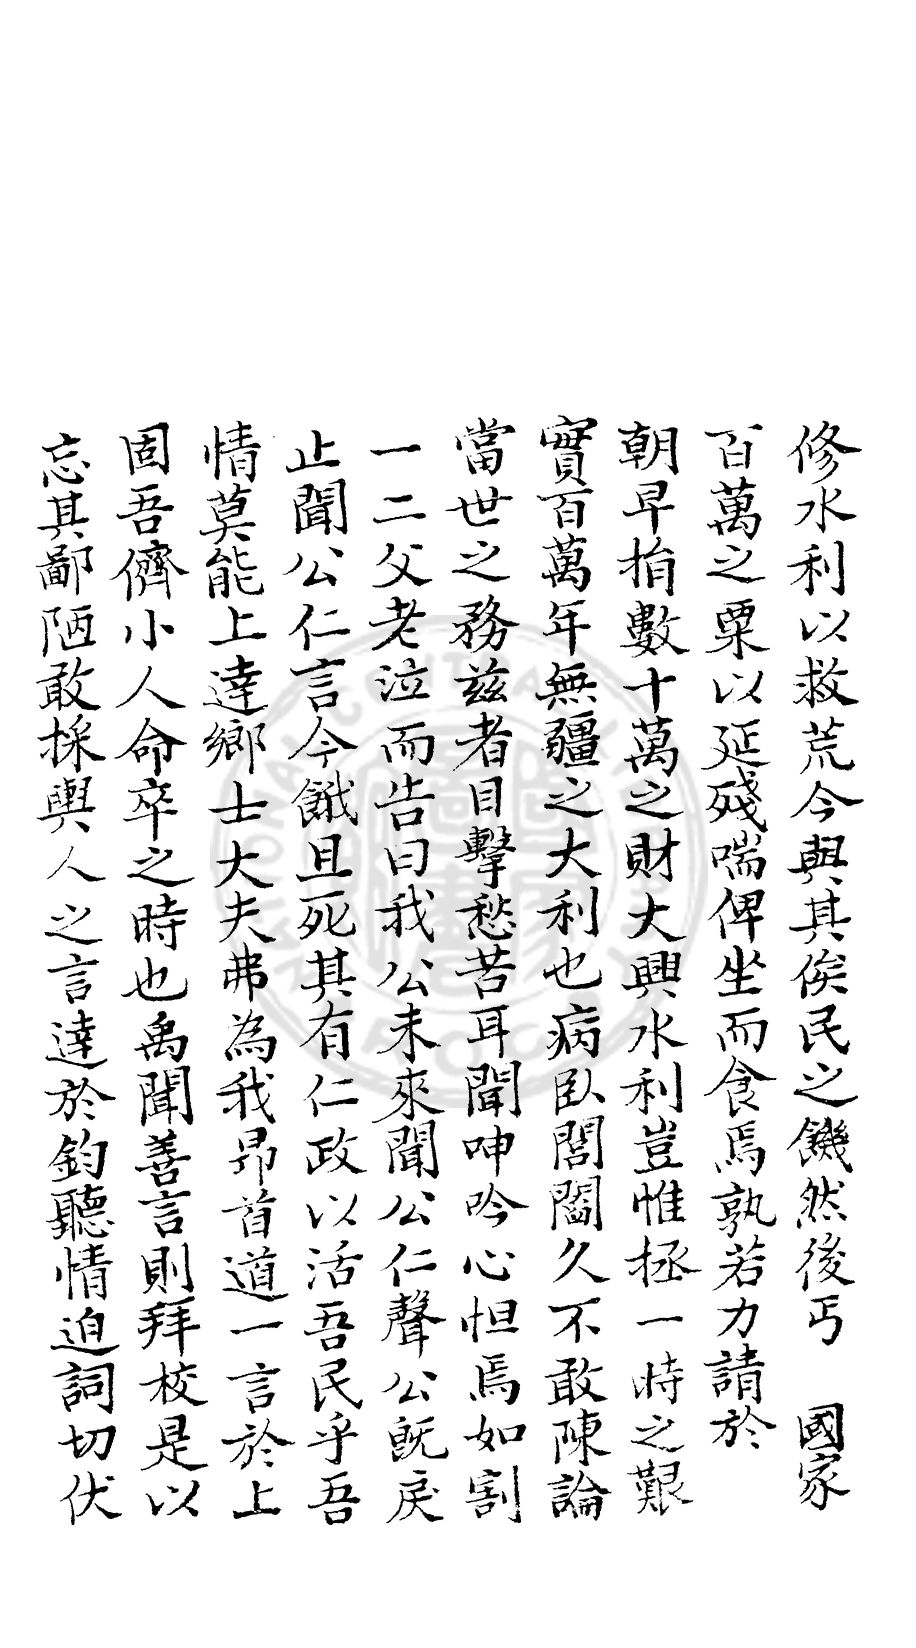 修水利以救荒今與其俟民之饑然後丐　國家
百萬之粟以延殘喘俾坐而食焉孰若力請於
朝早捐數十萬之財大興水利豈惟拯一時之艱
實百萬年無疆之大利也病臥閭闔久不敢陳論
當世之務茲者目擊愁苦耳聞呻吟心怛焉如割
一二父老泣而告曰我公未來聞公仁聲公既戾
止聞公仁言今餓且死其有仁政以活吾民乎吾
情莫能上達鄉士大夫弗為我昂首道一言於上
固吾儕小人命卒之時也禹聞善言則拜校是以
忘其鄙陋敢採輿人之言達於鈞聽情迫詞切伏